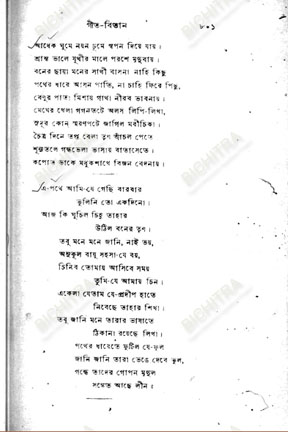 গীত-বিতান ৮০১
আধেক ঘুমে নয়ন চুমে স্বপন দিয়ে যায়।
শ্রান্ত ভালে যূথীর মালে পরশে মৃদুবায়।
বনের ছায়া মনের সাথী বাসনা নাহি কিছু
পথের ধারে আসন পাতি, না চাহি ফিরে পিছু,
বেণুর পাতা মিশায় গাথা নীরব ভাবনায়।
মেঘের খেলা গগনতটে অলস লিপি-লিখা,
সুদূর কোন স্মরণপটে জাগিল মরীচিকা।
চৈত্র দিনে তপ্ত বেলা তৃণ আঁচল পেতে
শূন্যতলে গন্ধভেলা ভাসায় বাতাসেতে।
কপোত ডাকে মধুকশাখে বিজন বেদনায়।
এ-পথে আমি-যে গেছি বারবার
ভুলিনি তো একদিনো।
আজ কি ঘুচিল চিহ্ন তাহার
উঠিল বনের তৃণ।
তবু মনে মনে জানি, নাই ভয়,
অনুকূল বায়ু সহসা-যে বয়,
চিনিব তোমায় আসিবে সময়
তুমি-যে আমায় চিন।
একেলা যেতাম যে-প্রদীপ হাতে
নিবেছে তাহার শিখা।
তবু জানি মনে তারার ভাষাতে
ঠিকানা রয়েছে লিখা।
পথের ধারেতে ফুটিল যে-ফুল
জানি জানি তারা ভেঙে দেবে ভুল,
গন্ধে তাদের গোপন মৃদুল
সংকেত আছে লীন।
BICHITRA